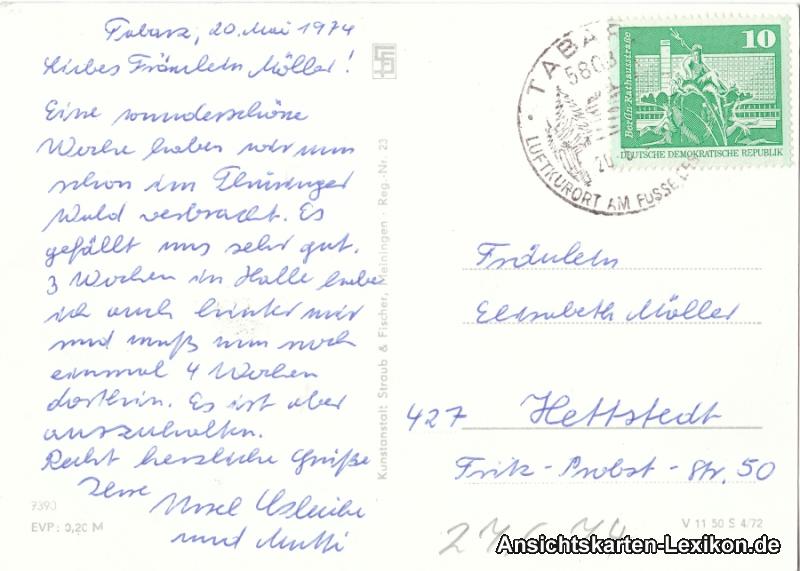 Tabarz, 20. Mai 1974
Liebes Fräulein Möller!
Eine wunderschöne
Woche haben wir nun
schon im Thüringer
Wald verbracht. Es
gefällt uns sehr gut.
3 Wochen in Halle habe
ich auch hinter mir
und muß nun noch
einmal 4 Wochen
dorthin. Es ist aber
auszuhalten.
Recht herzliche Grüße
Ihre
Ursel
und Mutti
7390
EVP: 0,20 M
Kunstanstalt: Straub & Fischer, Meiningen · Reg.-Nr. 23
TABARZ
5808
20
LUFTKURORT AM FUSSE DES
10
Berlin-Rathausstraße
DEUTSCHE DEMOKRATISCHE REPUBLIK
Fräulein
Elisabeth Möller
427 Hettstedt
Fritz-Probst-Str. 50
V 11 50 S 4/72
Ansichtskarten-Lexikon.de